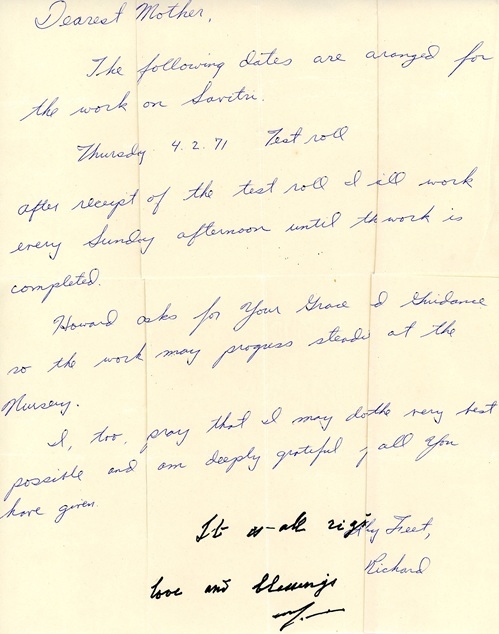 Dearest Mother,
The following dates are aranged for
the work on Savitri.
Thursday 4.2.71 Test roll
after receipt of the test roll I ill work
every Sunday afternoon until th work is
completed.
Howard asks for Your Grace d Guidance
so the work may progress steadi at the
Nursery.
I, too, pray that I may do the very best
possible and am deeply grateful f all You
have given
It is all righ
hy Feet,
Richard
love and blessings